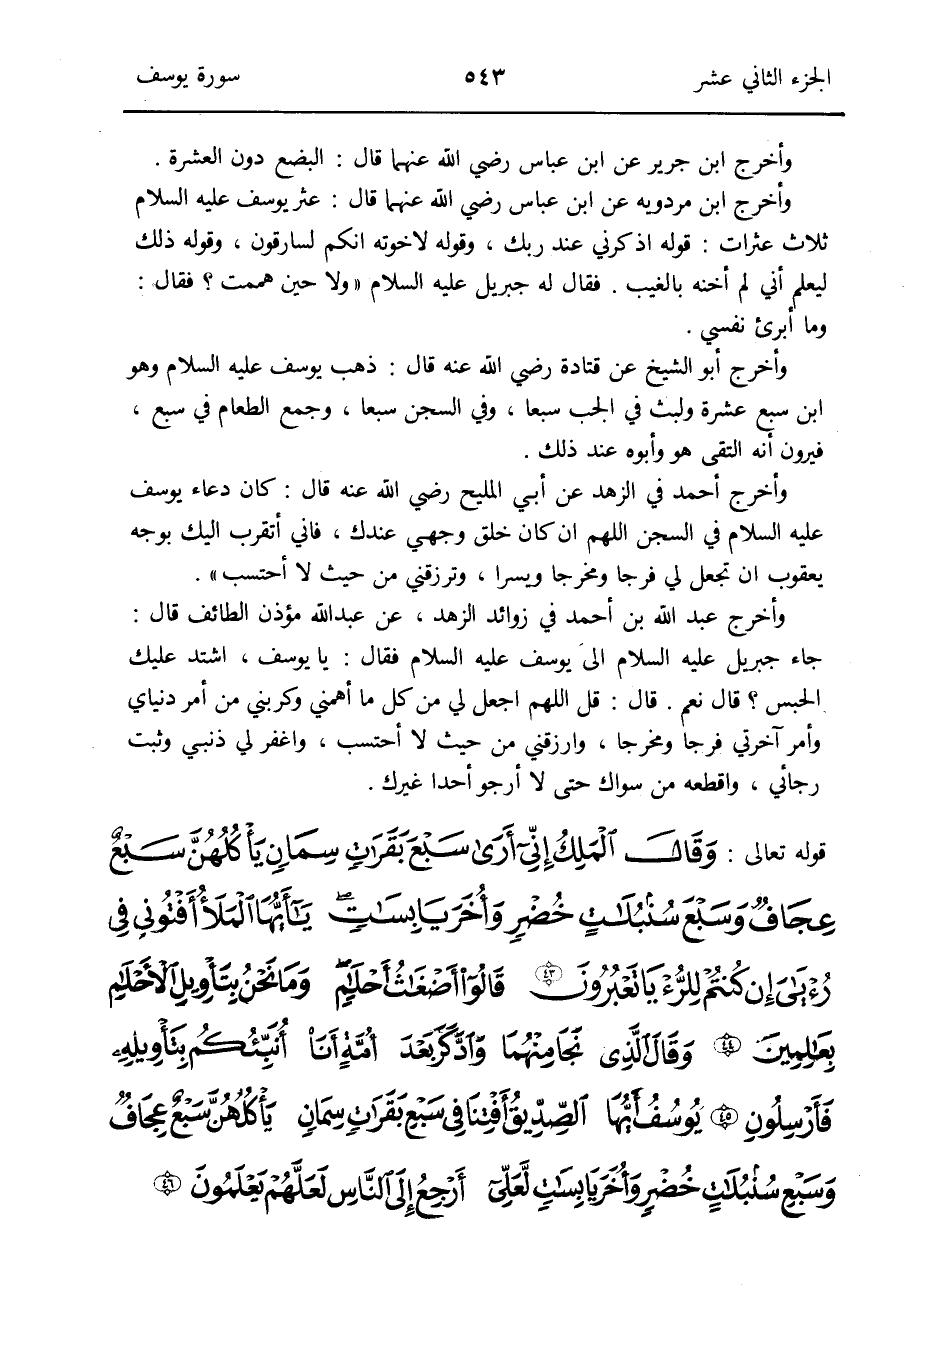 الجزء الثاني عشر ٥٤٣ سورة يوسف
وأخرج ابن جرير عن ابن عباس رضي الله عنهما قال : البضع دون العشرة .
وأخرج ابن مردويه عن ابن عباس رضي الله عنهما قال : عثر يوسف عليه السلام
ثلاث عثرات : قوله اذكرني عند ربك ، وقوله لاخوته انكم لسارقون ، وقوله ذلك
ليعلم أني لم أخنه بالغيب . فقال له جبريل عليه السلام «ولا حين هممت ؟ فقال :
وما أبرئ نفسي .
وأخرج أبو الشيخ عن قتادة رضي الله عنه قال : ذهب يوسف عليه السلام وهو
ابن سبع عشرة ولبث في الجب سبعا ، وفي السجن سبعا ، وجمع الطعام في سبع ،
فيرون أنه التقى هو وأبوه عند ذلك .
وأخرج أحمد في الزهد عن أبي المليح رضي الله عنه قال : كان دعاء يوسف
عليه السلام في السجن اللهم ان كان خلق وجهي عندك ، فاني أتقرب اليك بوجه
يعقوب ان تجعل لي فرجا ومخرجا ويسرا ، وترزقني من حيث لا أحتسب» .
وأخرج عبد الله بن أحمد في زوائد الزهد ، عن عبدالله مؤذن الطائف قال :
جاء جبريل عليه السلام الى يوسف عليه السلام فقال : يا يوسف ، اشتد عليك
الحبس ؟ قال نعم . قال : قل اللهم اجعل لي من كل ما أهمني وكربني من أمر دنياي
وأمر آخرتي فرجا ومخرجا ، وارزقني من حيث لا أحتسب ، واغفر لي ذنبي وثبت
رجائي ، واقطعه من سواك حتى لا أرجو أحدا غيرك .
قوله تعالى : وَقَالَ الْمَلِكُ إِنِّي أَرَىٰ سَبْعَ بَقَرَاتٍ سِمَانٍ يَأْكُلُهُنَّ سَبْعٌ
عِجَافٌ وَسَبْعَ سُنْبُلَاتٍ خُضْرٍ وَأُخَرَ يَابِسَاتٍ ۖ يَا أَيُّهَا الْمَلَأُ أَفْتُونِي فِي
رُءْيَايَ إِن كُنتُمْ لِلرُّءْيَا تَعْبُرُونَ ٤٣ قَالُوا أَضْغَاثُ أَحْلَامٍ ۖ وَمَا نَحْنُ بِتَأْوِيلِ الْأَحْلَامِ
بِعَالِمِينَ ٤٤ وَقَالَ الَّذِي نَجَا مِنْهُمَا وَادَّكَرَ بَعْدَ أُمَّةٍ أَنَا أُنَبِّئُكُم بِتَأْوِيلِهِ
فَأَرْسِلُونِ ٤٥ يُوسُفُ أَيُّهَا الصِّدِّيقُ أَفْتِنَا فِي سَبْعِ بَقَرَاتٍ سِمَانٍ يَأْكُلُهُنَّ سَبْعٌ عِجَافٌ
وَسَبْعِ سُنْبُلَاتٍ خُضْرٍ وَأُخَرَ يَابِسَاتٍ لَّعَلِّي أَرْجِعُ إِلَى النَّاسِ لَعَلَّهُمْ يَعْلَمُونَ ٤٦